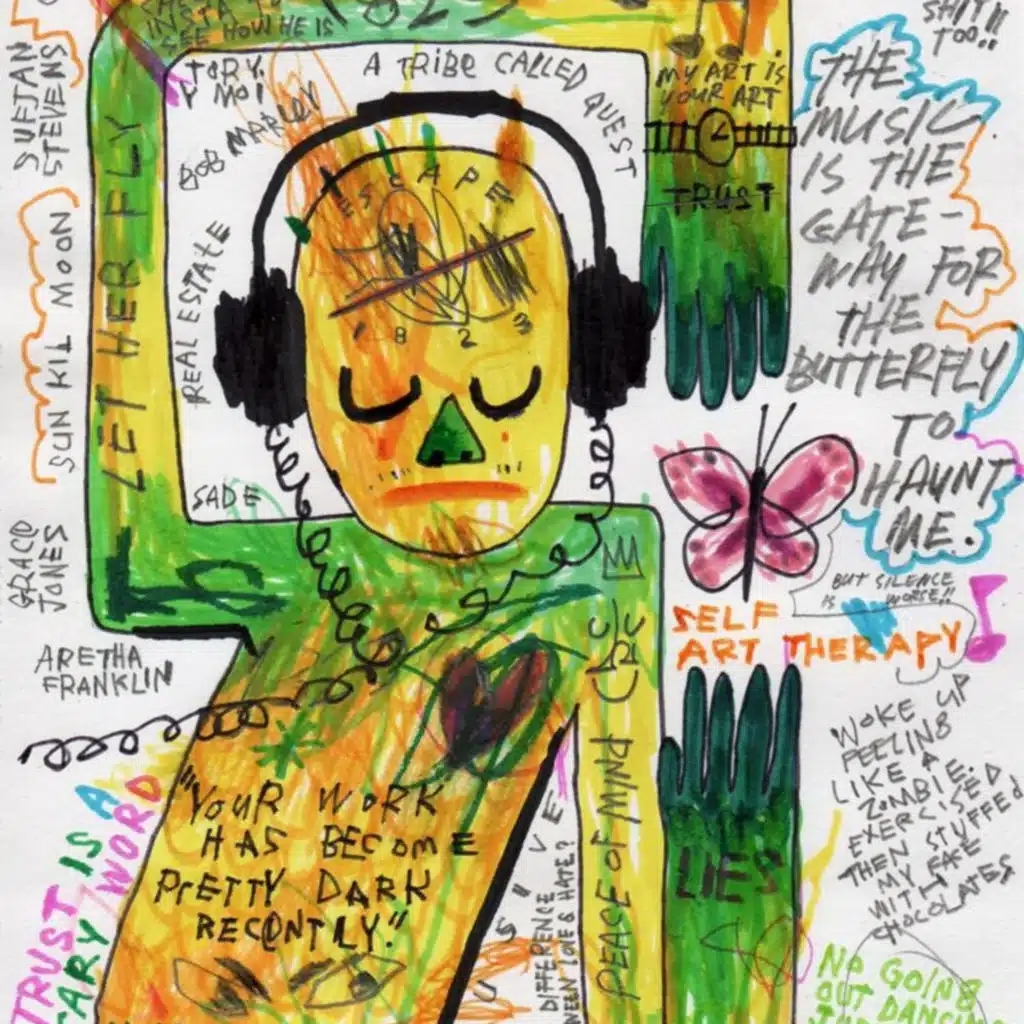 INSTA TO
SEE HOW HE IS
1823
SHIT!!
TOO!!
SUFJAN
STEVENS
TORY.
Y MOI
BOB MARLEY
A TRIBE CALLED QUEST
MY ART IS
YOUR ART
TRUST
THE
MUSIC
IS THE
GATE-
WAY FOR
THE
BUTTERFLY
TO
HAUNT
ME.
LET HER FLY
ESCAPE
1823
SUN KIL MOON
REAL ESTATE
SADE
GRACE
JONES
BUT SILENCE
IS WORSE!!
SELF
ART THERAPY
ARETHA
FRANKLIN
PEACE OF MIND
WOKE UP
FEELING
LIKE A
ZOMBIE.
EXERCISED
THEN STUFFED
MY FACE
WITH
CHOCOLATES
"YOUR WORK
HAS BECOME
PRETTY DARK
RECENTLY."
LIES
TRUST IS A
SCARY WORD
DIFFERENCE
LOVE & HATE?
NO GOING
OUT DANCING